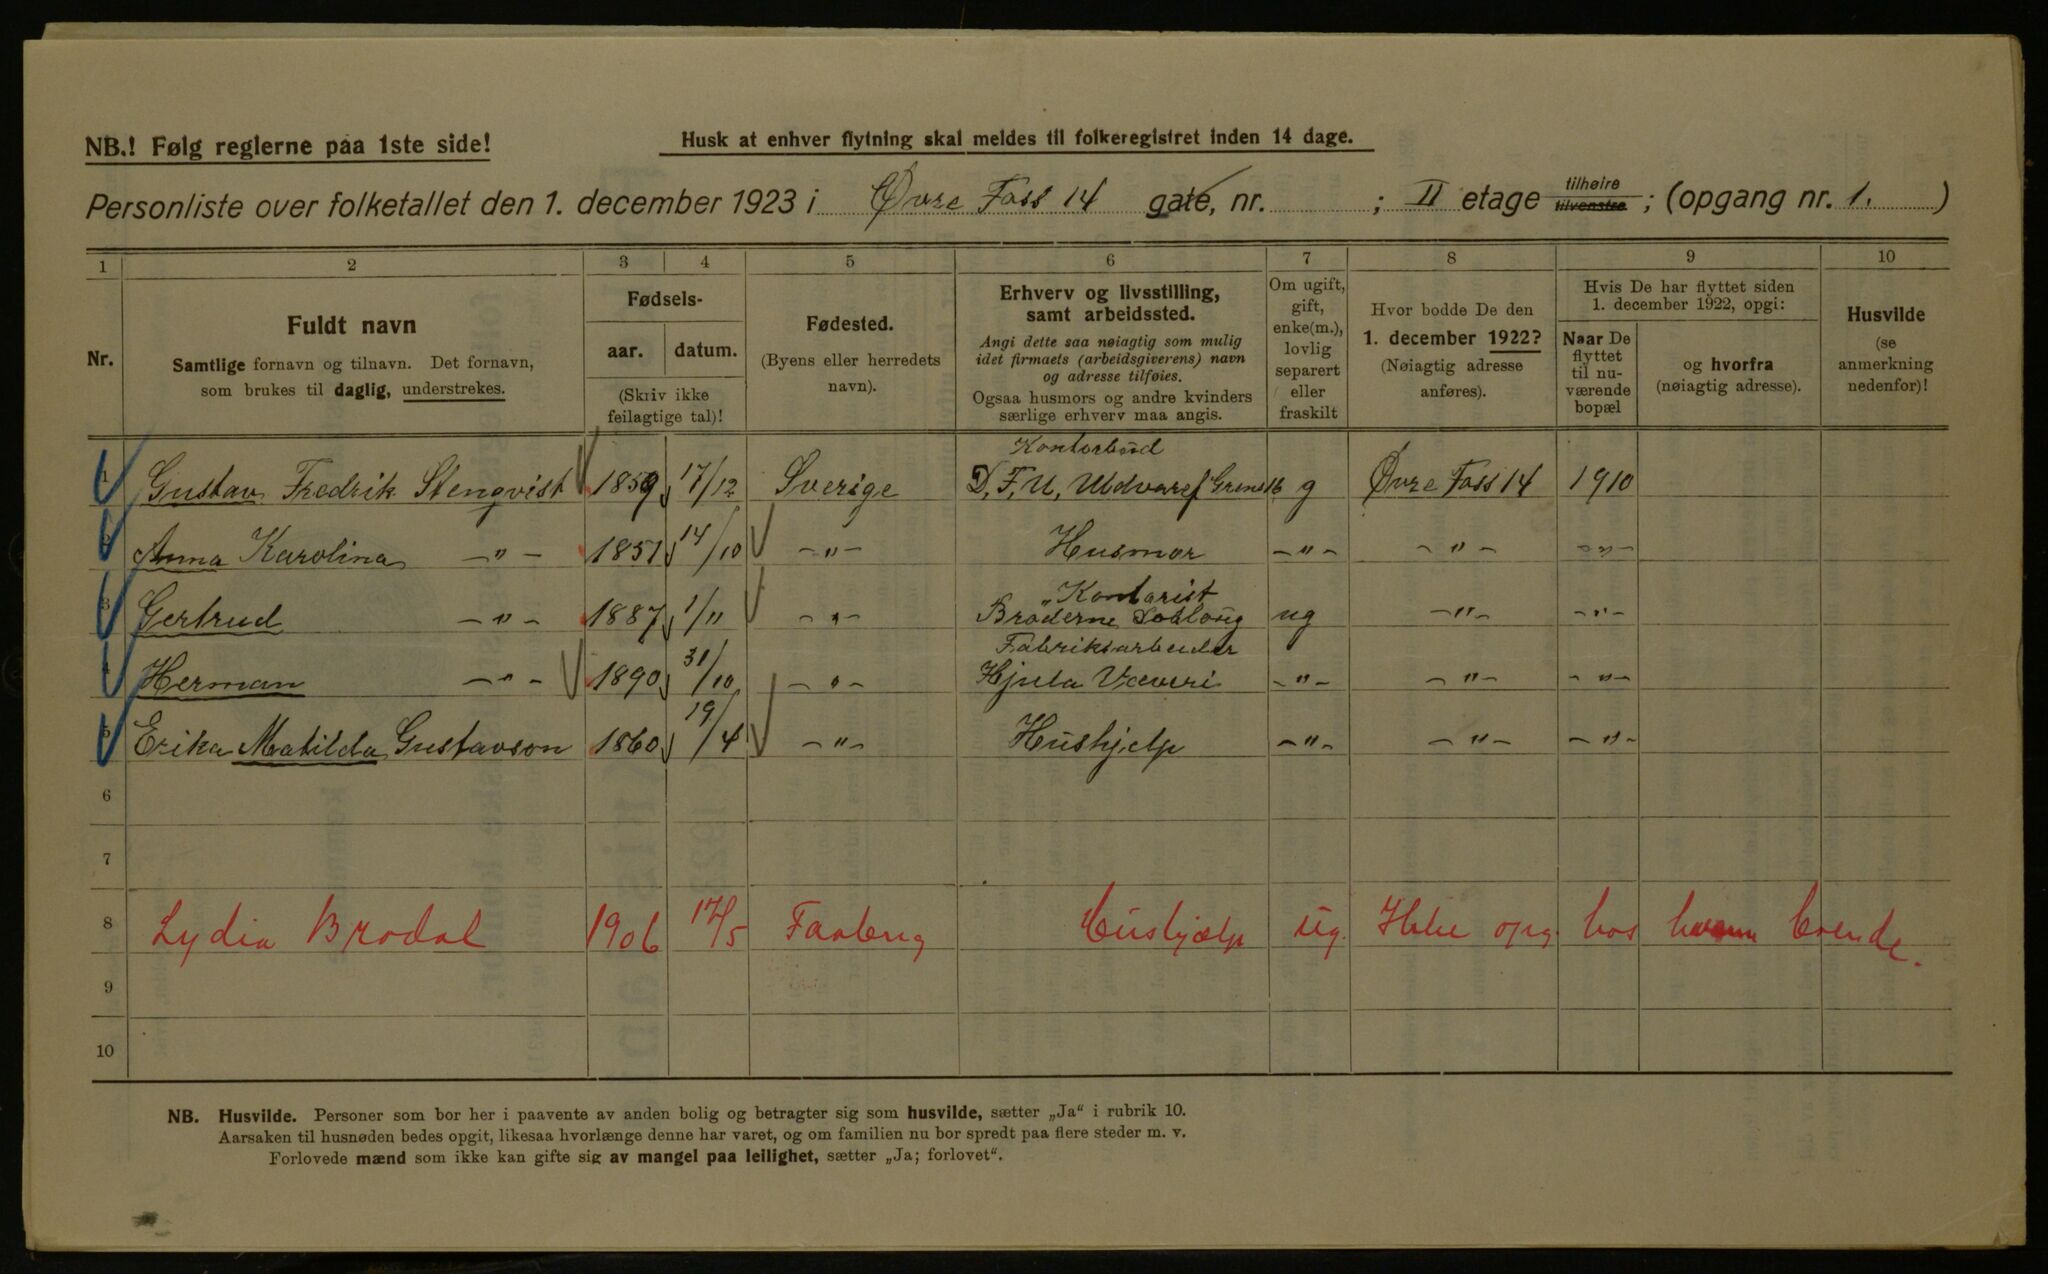 NB.! Følg reglerne paa 1ste side!
Husk at enhver flytning skal meldes til folkeregistret inden 14 dage.
Personliste over folketallet den 1. december 1923 i Øvre Foss 14 gate, nr. ; II etage tilhøire tilvenstre ; (opgang nr. 1. )
1 2 3 4 5 6 7 8 9 10
Nr.
Fuldt navn
Samtlige fornavn og tilnavn. Det fornavn,
som brukes til daglig, understrekes.
Fødsels-
aar. datum.
(Skriv ikke
feilagtige tal)!
Fødested.
(Byens eller herredets
navn).
Erhverv og livsstilling,
samt arbeidssted.
Angi dette saa nøiagtig som mulig
idet firmaets (arbeidsgiverens) navn
og adresse tilføies.
Ogsaa husmors og andre kvinders
særlige erhverv maa angis.
Om ugift,
gift,
enke(m.),
lovlig
separert
eller
fraskilt
Hvor bodde De den
1. december 1922?
(Nøiagtig adresse
anføres).
Hvis De har flyttet siden
1. december 1922, opgi:
Naar De
flyttet
til nu-
værende
bopæl
og hvorfra
(nøiagtig adresse).
Husvilde
(se
anmerkning
nedenfor)!
Kontorbud
1 Gustav Fredrik Stenqvist 1859 17/12 Sverige D.F.U. Uldvaref Grens 16 g Øvre Foss 14 1910
2 Anna Karolina -"- 1851 14/10 -"- Husmor -"- -"- -"-
"Kontorist
3 Gertrud -"- 1887 1/11 -"- Brøderne ug -"- -"-
Fabriksarbeider
4 Herman -"- 1890 31/10 -"- Hjula Væveri -"- -"- -"-
5 Erika Matilda Gustavson 1860 19/4 -"- Hushjelp -"- -"- -"-
6
7
8 Lydia Brodal 1906 17/5 Faaberg Hushjælp ug. Ikke opg. hos
9
10
NB. Husvilde. Personer som bor her i paavente av anden bolig og betragter sig som husvilde, sætter „Ja" i rubrik 10.
Aarsaken til husnøden bedes opgit, likesaa hvorlænge denne har varet, og om familien nu bor spredt paa flere steder m. v.
Forlovede mænd som ikke kan gifte sig av mangel paa leilighet, sætter „Ja; forlovet".